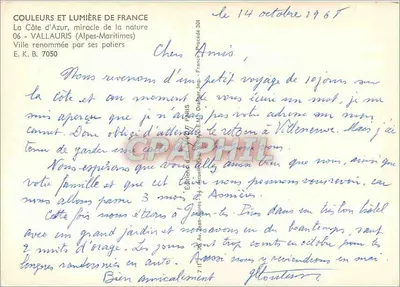 COULEURS ET LUMIÈRE DE FRANCE
La Côte d'Azur, miracle de la nature
06 - VALLAURIS (Alpes-Maritimes)
Ville renommée par ses potiers
E. K. B. 7050
le 14 octobre 1968
Chers Amis,
Nous revenons d'un petit voyage de 10 jours sur
la Côte et au moment de vous écrire un mot, je me
suis aperçue que je n'avais pas votre adresse sur mon
carnet. Donc obligé d'attendre le retour à Villeneuve. Mais j'ai
tenu de garder
Nous espérons que vous allez aussi bien que nous, ainsi que
votre famille et que cet hiver nous pourrons vous revoir, car
nous allons passer 3 mois à Asnières.
Cette fois nous étions à Juan-les-Pins dans un très bon hôtel
avec un grand jardin et nous avons eu du beau temps, sauf
2 nuits d'orage. Les jours sont trop courts en octobre pour les
longues randonnées en auto. Aussi nous y reviendrons en mai.
Bien amicalement
CPARAMA